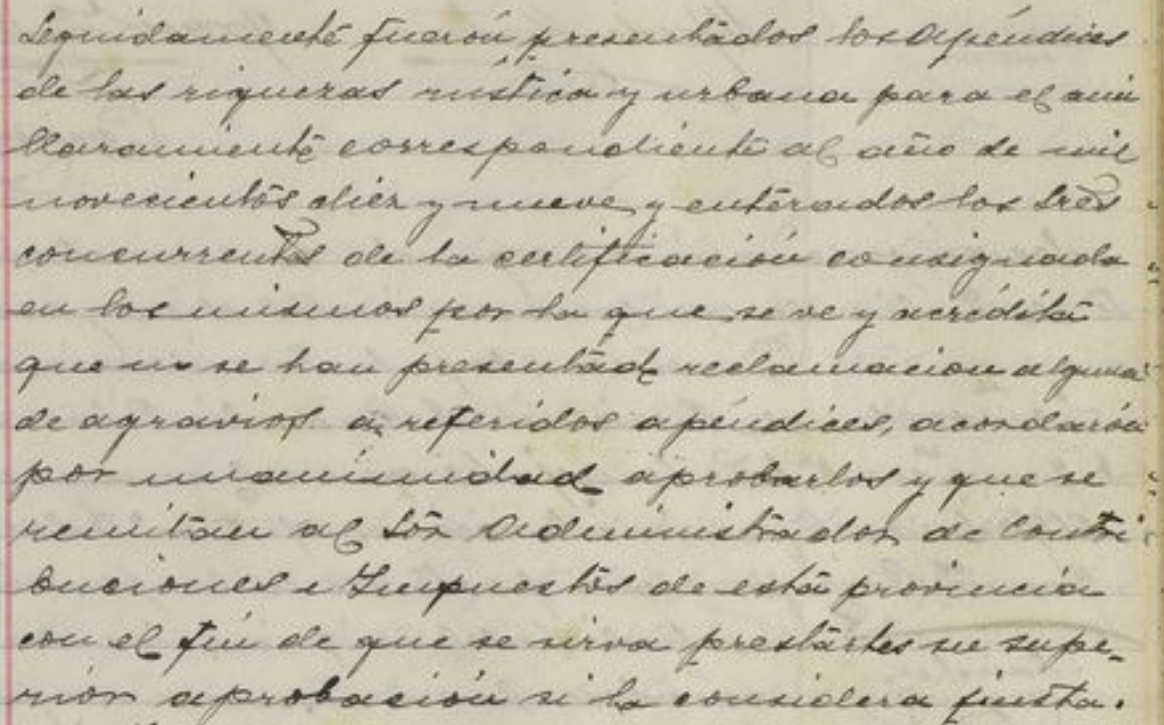 Seguidamente fueron presentados los Apéndices
de las riquezas rústica y urbana para el ami
llaramiento correspondiente al año de mil
novecientos diez y nueve, y enterados los Sres
concurrentes de la certificación consignada
en los mismos por la que se ve y acredita
que no se han presentado reclamacion alguna
de agravios a referidos apéndices, acordaron
por unanimidad aprobarlos y que se
remitan al Sór Administrador de Contri
buciones e Impuestos de esta provincia
con el fin de que se sirva prestarles su supe-
rior aprobación si la considera justa.